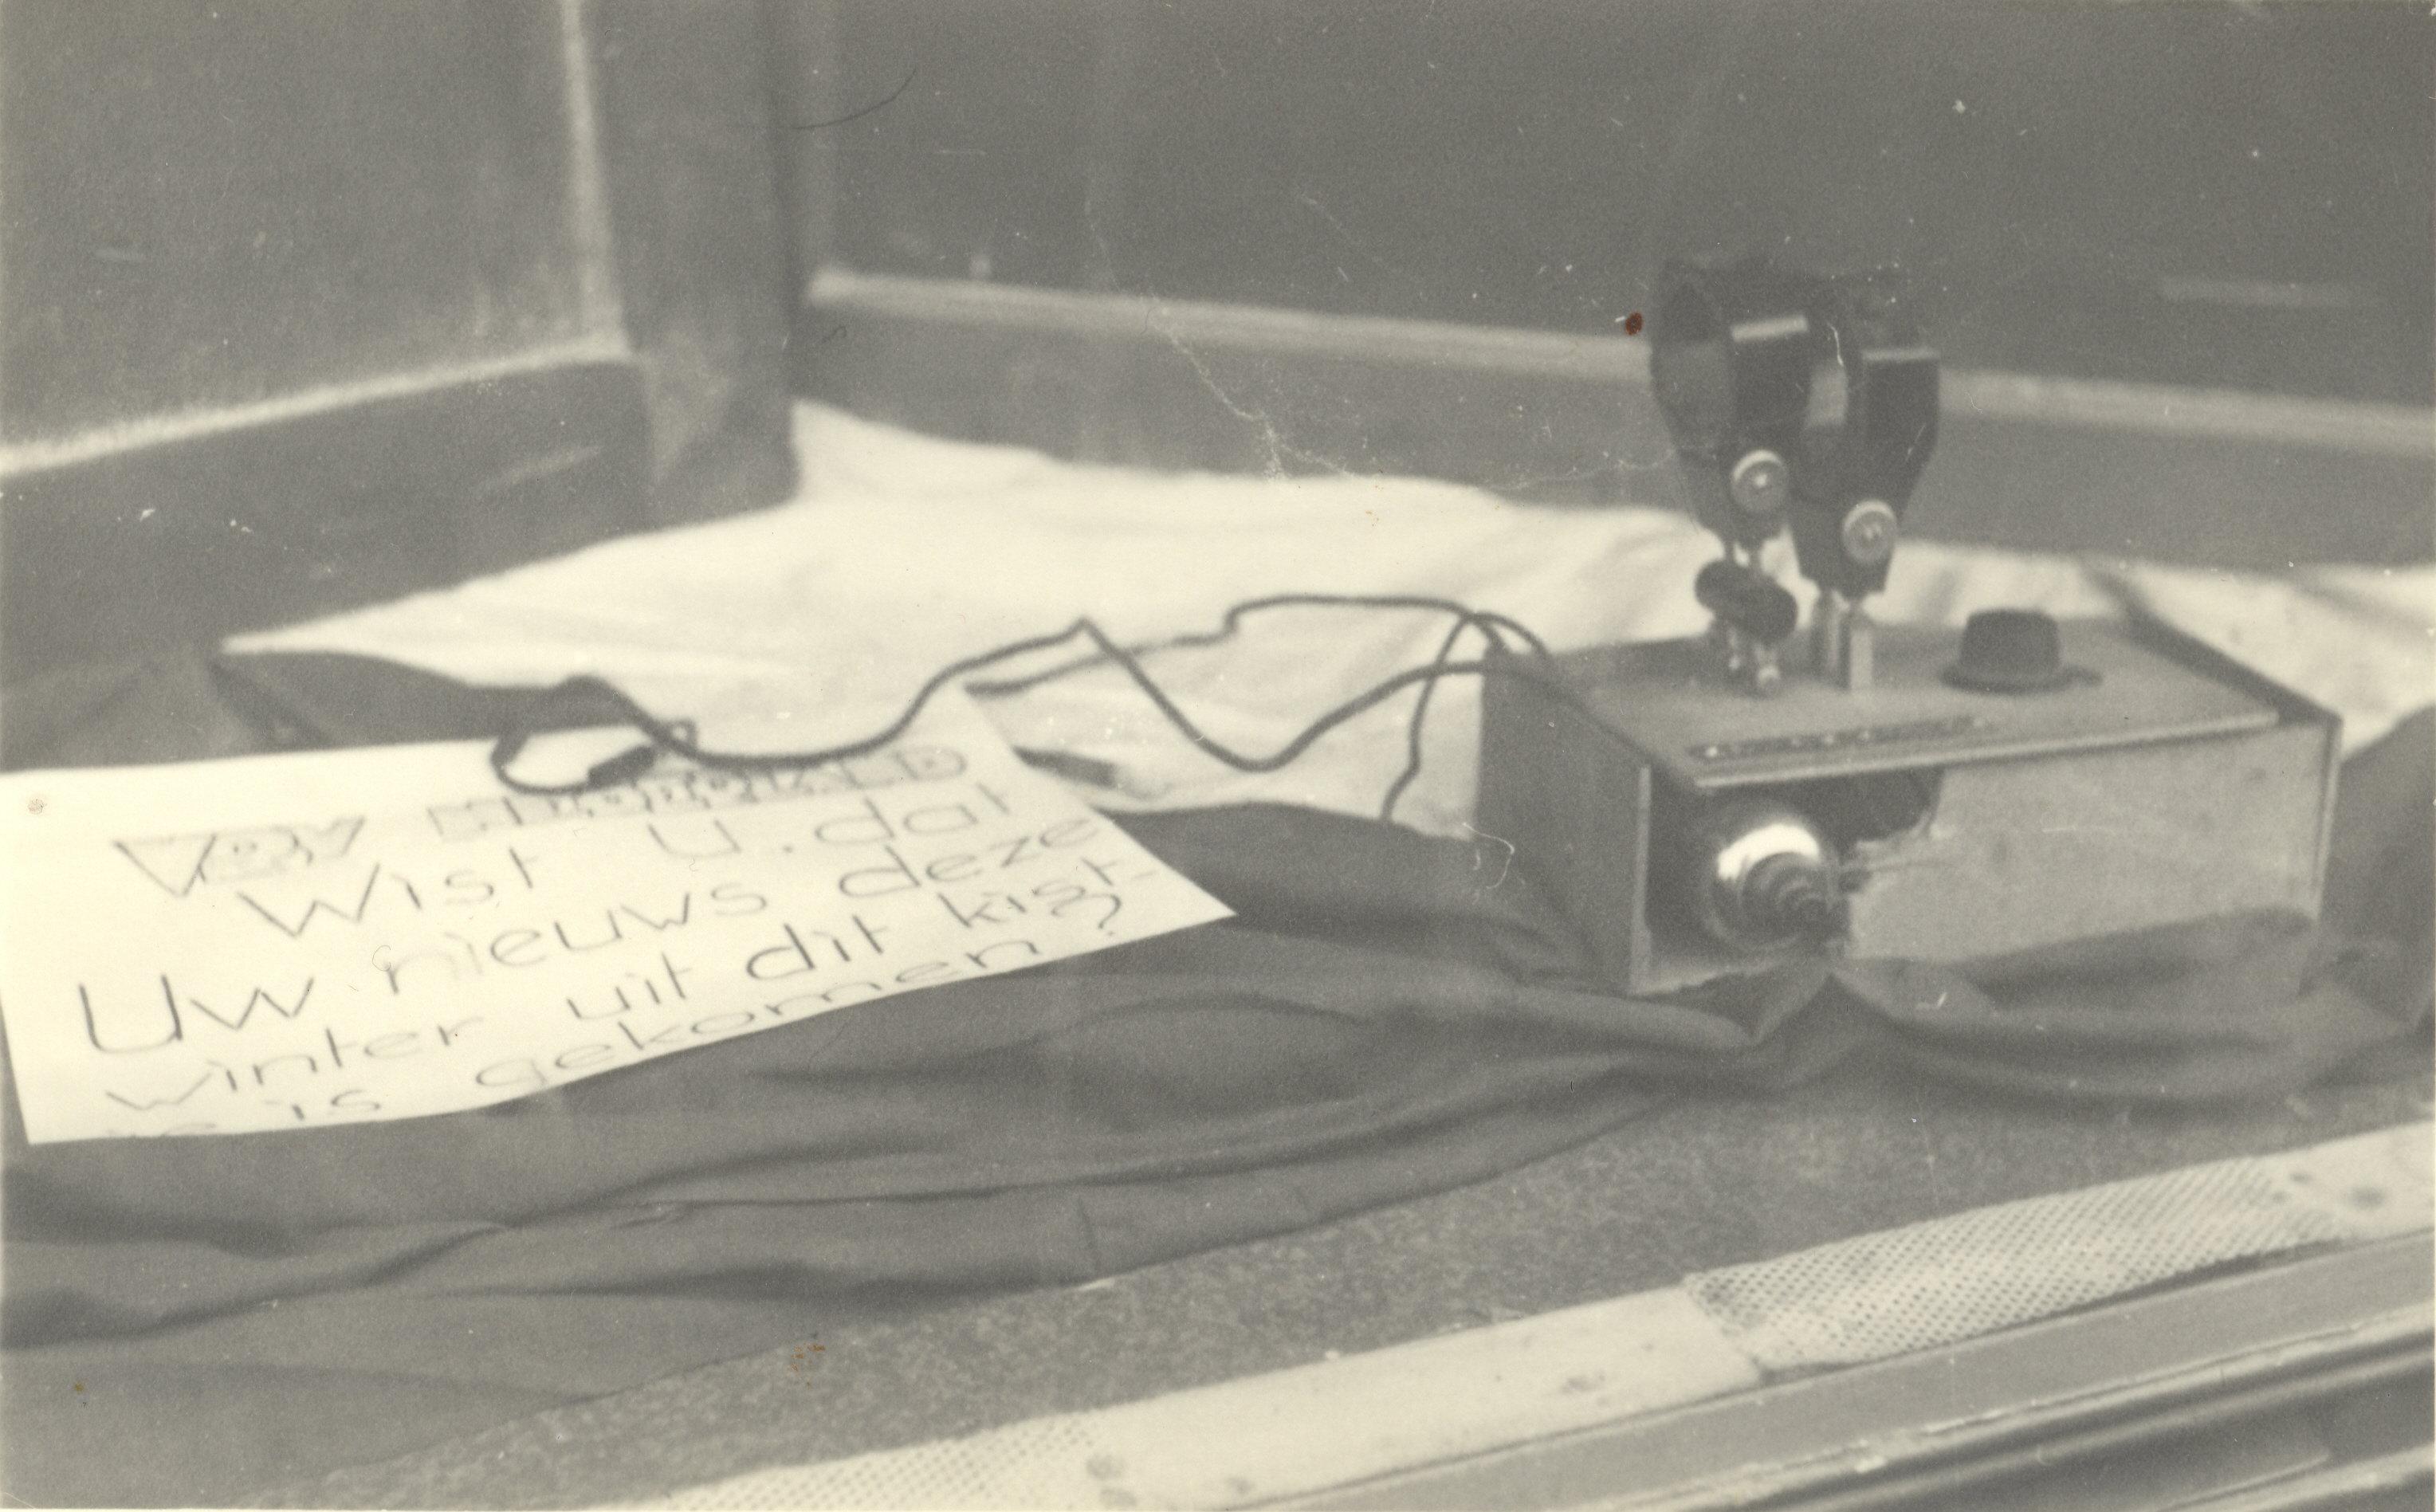 Wist U. dat
Uw nieuws deze
winter uit dit kist-
is gekomen?